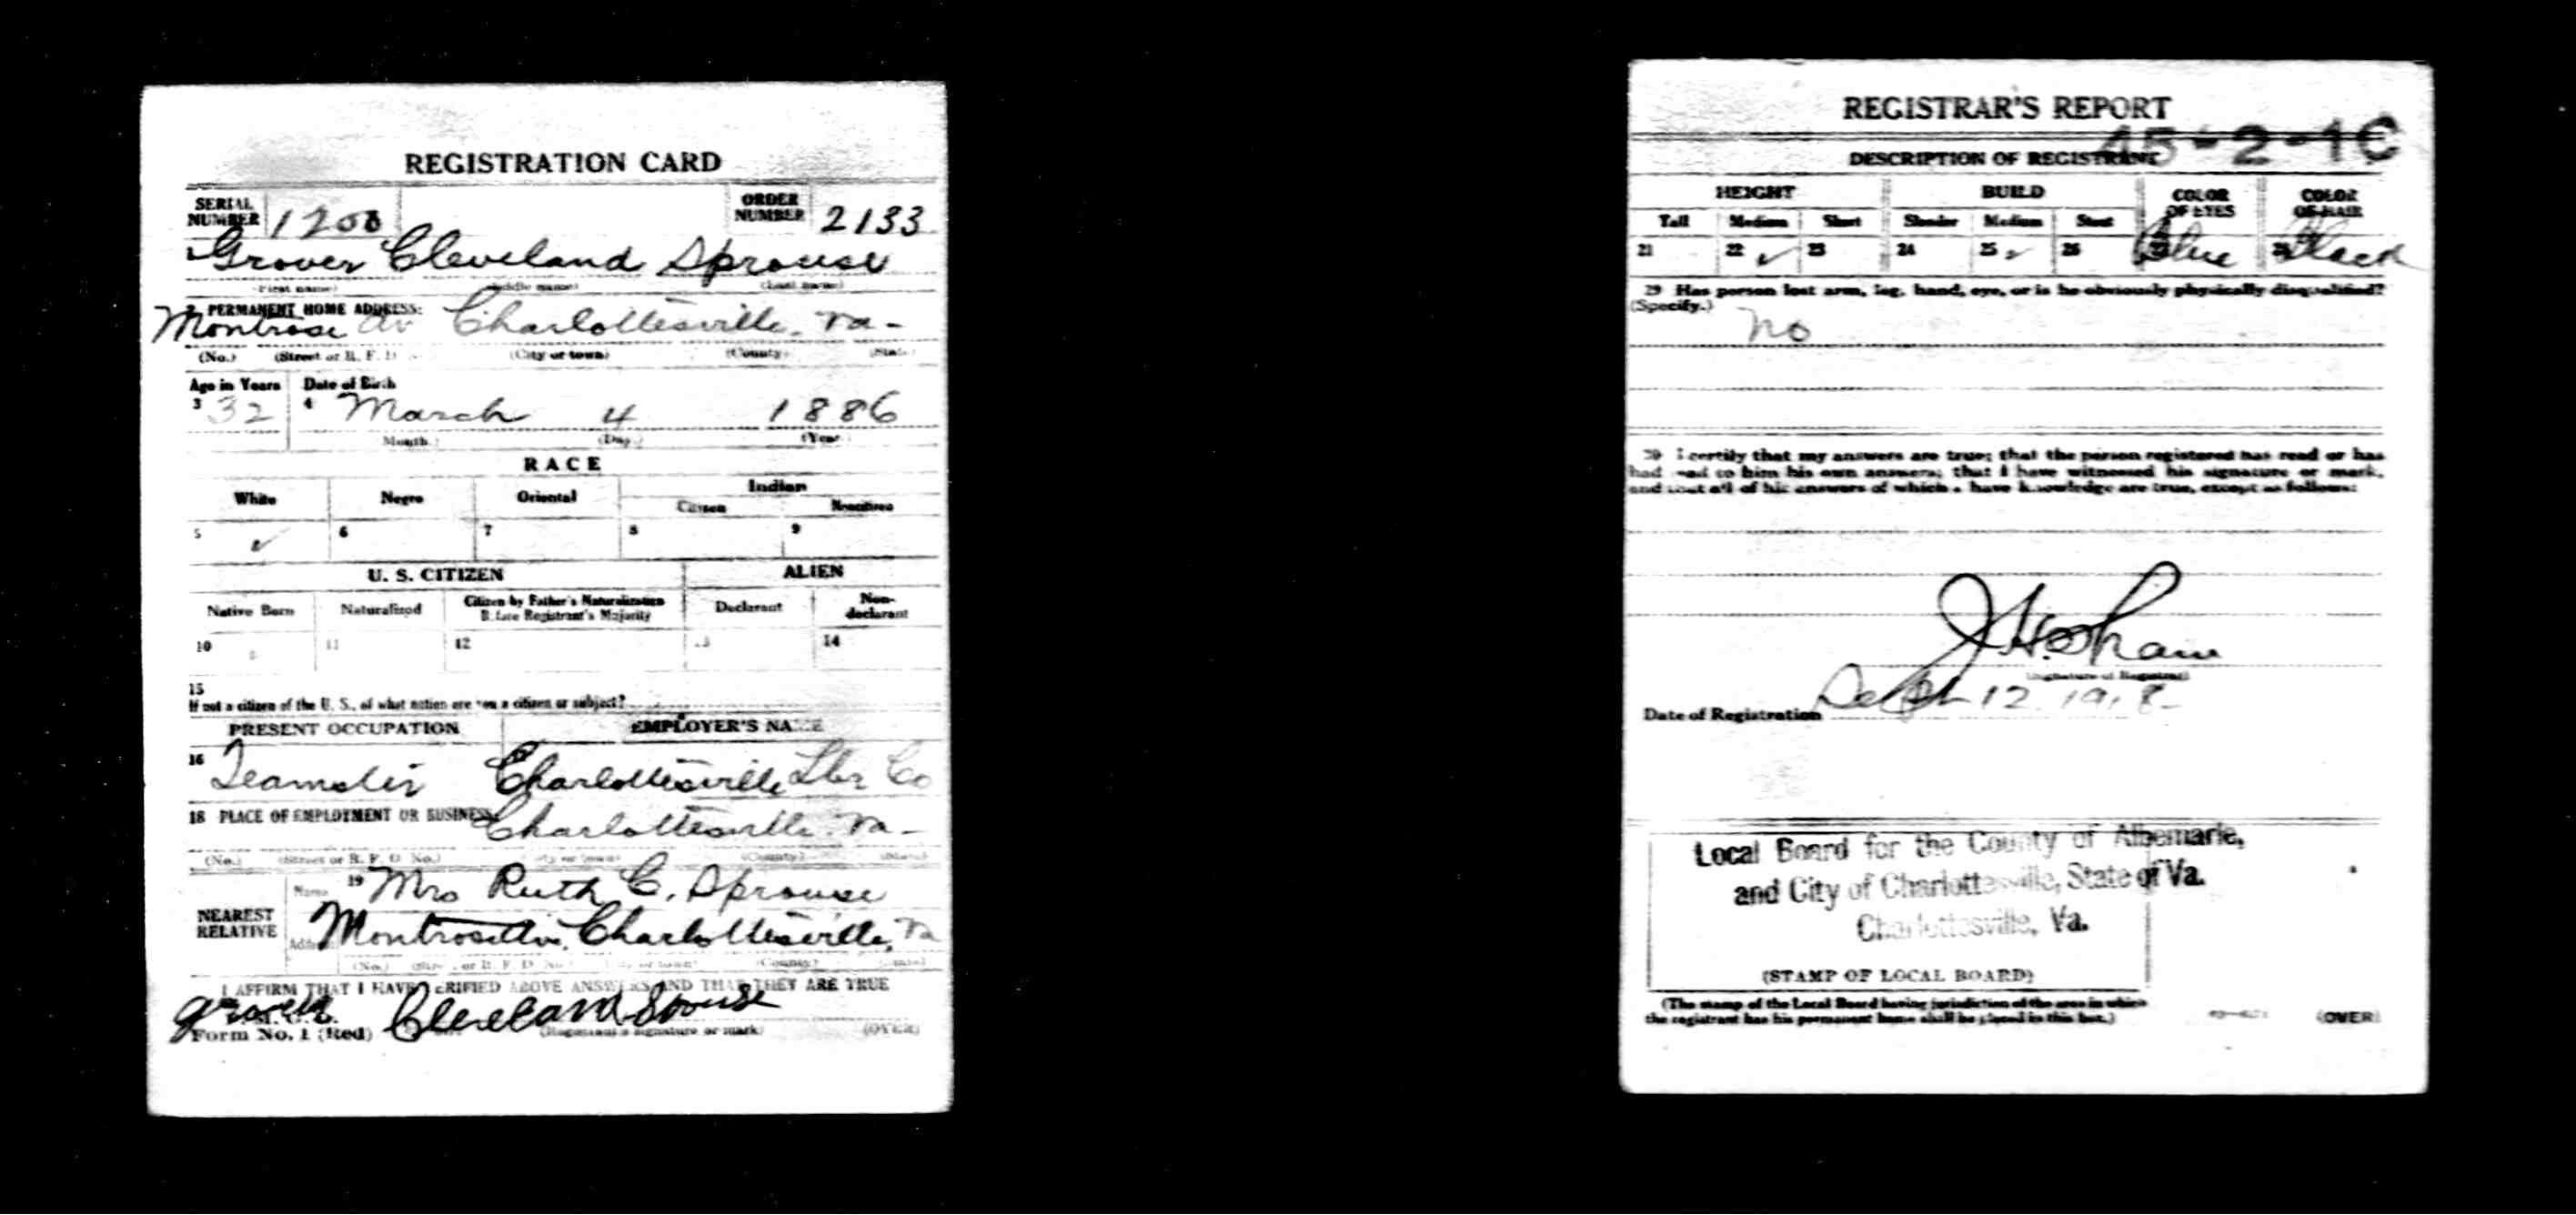 REGISTRATION CARD
SERIAL NUMBER 1200 ORDER NUMBER 2133
1 Grover Cleveland Sprouse
(First name) (Middle name) (Last name)
2 PERMANENT HOME ADDRESS:
Montrose Av Charlottesville Va-
(No.) (Street or R. F. D. (City or town) (County) (State)
Age in Years Date of Birth
3 32 4 March 4 1886
Month.) (Day.) (Year.
RACE
White Negro Oriental Indian
Citizen Noncitizen
5 ✓ 6 7 8 9
U. S. CITIZEN ALIEN
Native Born Naturalized Citizen by Father's Naturalization Before Registrant's Majority Declarant Non-declarant
10 11 12 13 14
15
If not a citizen of the U. S., of what nation are you a citizen or subject?
PRESENT OCCUPATION EMPLOYER'S NAME
16 Teamster Charlottesville Lbr Co
18 PLACE OF EMPLOYMENT OR BUSINESS:
Charlottesville Va-
(No.) (Street or R. F. D. No.) (City or town) (County) (State)
NEAREST RELATIVE
Name 19 Mrs Ruth C. Sprouse
Address Montrose Av. Charlottesville, Va
(No.) (Street or R. F. D. No.) (City or town) (County) (State)
I AFFIRM THAT I HAVE VERIFIED ABOVE ANSWERS AND THAT THEY ARE TRUE
Grover Cleveland Sprouse
Form No. 1 (Red) (Registrant's signature or mark) (OVER)
REGISTRAR'S REPORT
45-2-1C
DESCRIPTION OF REGISTRANT
HEIGHT BUILD COLOR OF EYES COLOR OF HAIR
Tall Medium Short Slender Medium Stout
21 22 ✓ 23 24 25 ✓ 26 27 Blue 28 Black
29 Has person lost arm, leg, hand, eye, or is he obviously physically disqualified?
(Specify.)
no
30 I certify that my answers are true; that the person registered has read or has
had read to him his own answers; that I have witnessed his signature or mark,
and that all of his answers of which I have knowledge are true, except as follows:
(Signature of Registrar)
Date of Registration Sept 12 1918-
Local Board for the County of Albemarle,
and City of Charlottesville, State of Va.
Charlottesville, Va.
(STAMP OF LOCAL BOARD)
(The stamp of the Local Board having jurisdiction of the area in which
the registrant has his permanent home shall be placed in this box.)
(OVER)